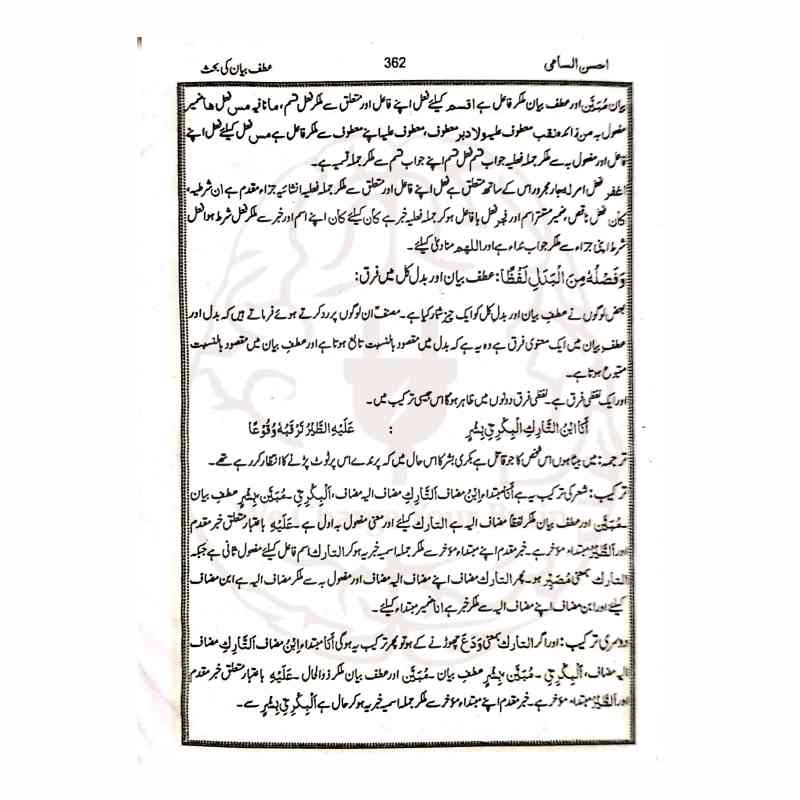 احسن السامی 362 عطف بیان کی بحث
بیان مُبَیَّن اور عطف بیان ملکر فاعل ہے اقسم کیلئے فعل اپنے فاعل اور متعلق سے ملکر فعل قسم، ما نافیہ مس فعل ھا ضمیر
مفعول بہ من زائدہ نقب معطوف علیہ ولا دبر معطوف، معطوف علیہ اپنے معطوف سے ملکر فاعل ہے مس فعل کیلئے فعل اپنے
فاعل اور مفعول بہ سے ملکر جملہ فعلیہ جواب قسم فعل قسم اپنے جواب قسم سے ملکر جملہ قسمیہ ہے۔
اغفر فعل امر لہ جار مجرور اس کے ساتھ متعلق ہے فعل اپنے فاعل اور متعلق سے ملکر جملہ فعلیہ انشائیہ جزاء مقدم ہے ان شرطیہ،
کان فعل ناقص، ضمیر مستتر اسم اور فجر فعل با فاعل ہو کر جملہ فعلیہ خبر ہے کان کیلئے کان اپنے اسم اور خبر سے ملکر فعل شرط ہوا فعل
شرط اپنی جزاء سے ملکر جواب نداء ہے اور اللھم منادیٰ کیلئے۔
وَفَصْلُهٗ مِنَ الْبَدَلِ لَفْظًا: عطف بیان اور بدل کل میں فرق:
بعض لوگوں نے عطف بیان اور بدل کل کو ایک چیز شمار کیا ہے۔ مصنفؒ ان لوگوں پر رد کرتے ہوئے فرماتے ہیں کہ بدل اور
عطف بیان میں ایک معنوی فرق ہے وہ یہ ہے کہ بدل میں مقصود بالنسبت تابع ہوتا ہے اور عطف بیان میں مقصود بالنسبت
متبوع ہوتا ہے۔
اور ایک لفظی فرق ہے۔ لفظی فرق دونوں میں ظاہر ہوگا اس جیسی ترکیب میں۔
أَنَا ابْنُ التَّارِكِ الْبِكْرِيِّ بِشْرٍ : عَلَيْهِ الطَّيْرُ تَرْقُبُهٗ وُقُوْعًا
ترجمہ: میں بیٹا ہوں اس شخص کا جو قاتل ہے بکری بشر کا اس حال میں کہ پرندے اس پر ٹوٹ پڑنے کا انتظار کر رہے تھے۔
ترکیب: شعر کی ترکیب یہ ہے أَنَا مبتداء اِبْنُ مضاف اَلتَّارِكِ مضاف الیہ مضاف، اَلْبِكْرِيِّ۔ مُبَیَّن بِشْرٍ عطف بیان
۔مُبَیَّن اور عطف بیان ملکر لفظا مضاف الیہ ہے التارک کیلئے اور معنی مفعول بہ اول ہے۔ عَلَيْهِ باعتبار متعلق خبر مقدم
اور اَلطَّيْرُ مبتداء مؤخر ہے۔ خبر مقدم اپنے مبتداء مؤخر سے ملکر جملہ اسمیہ خبریہ ہو کر التارک اسم فاعل کیلئے مفعول ثانی ہے جبکہ
التارک بمعنی مُصَیِّر ہو۔ پھر التارک مضاف اپنے مضاف الیہ مضاف اور مفعول بہ سے ملکر مضاف الیہ ہے ابن مضاف
کیلئے اور ابن مضاف اپنے مضاف الیہ سے ملکر خبر ہے انا ضمیر مبتداء کیلئے۔
دوسری ترکیب: اور اگر التارک بمعنی وَدَعَ چھوڑنے کے ہو تو پھر ترکیب یہ ہوگی أَنَا مبتداء اِبْنُ مضاف اَلتَّارِكِ مضاف
الیہ مضاف، اَلْبِكْرِيِّ۔ مُبَیَّن، بِشْرٍ عطف بیان۔ مُبَیَّن اور عطف بیان ملکر ذوالحال۔ عَلَيْهِ باعتبار متعلق خبر مقدم
اور اَلطَّيْرُ مبتداء مؤخر ہے۔ خبر مقدم اپنے مبتداء مؤخر سے ملکر جملہ اسمیہ خبریہ ہو کر حال ہے اَلْبِكْرِيِّ بِشْرٍ سے۔